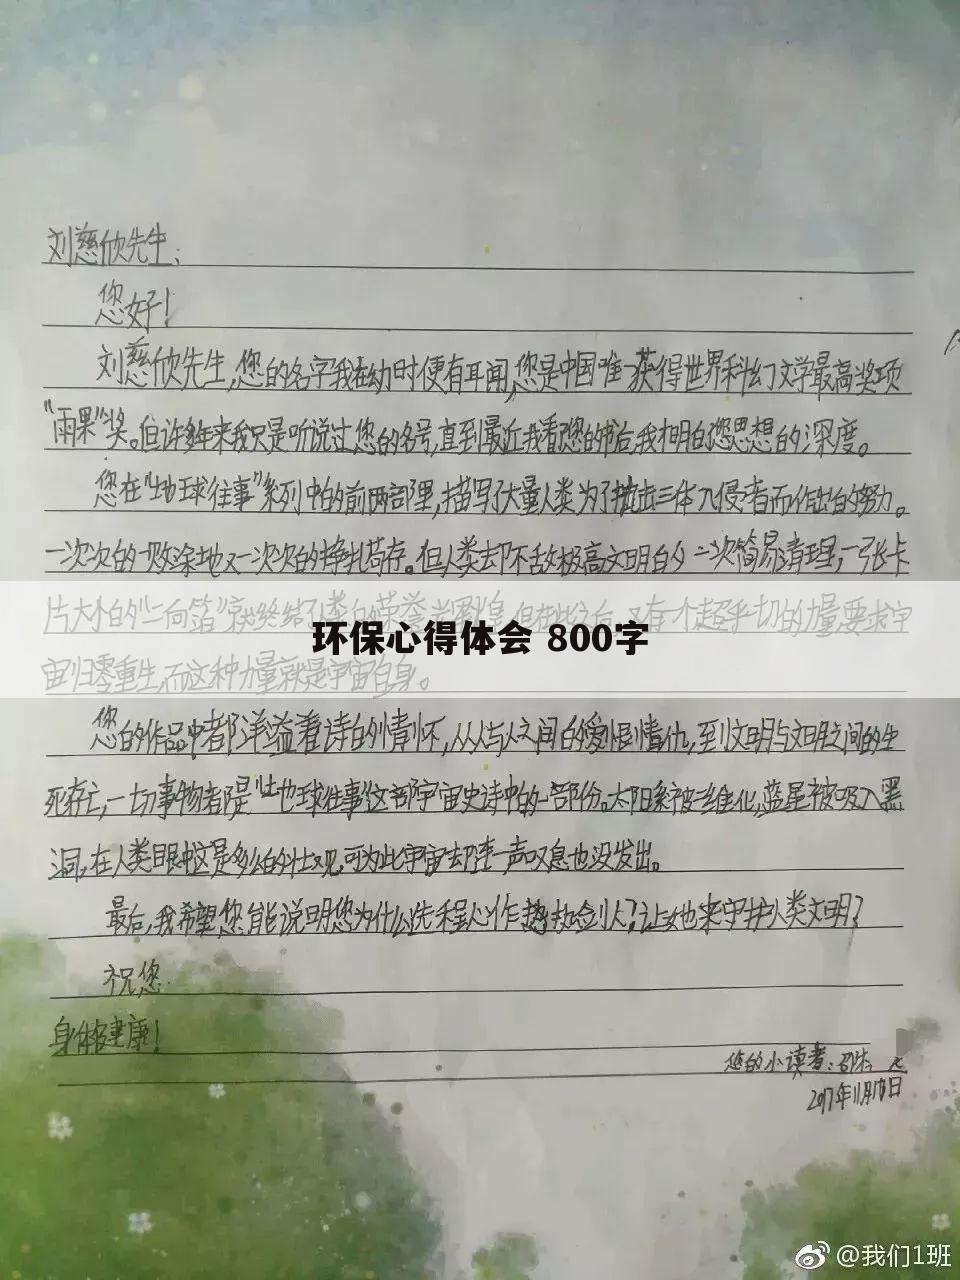 刘慈欣先生:
您好!
刘慈欣先生,您的名字我在幼时便有耳闻,您是中国唯一获得世界科幻文学最高奖项
"雨果"奖。但许多年来我只是听说过您的名号,直到最近我看您的书后,我才明白您思想的深度。
您在"地球往事"系列中的前两部里,描写了大量人类为了抗击三体入侵者而作出的努力。
一次次的一败涂地又一次次的挣扎苟存。但人类却不敌极高文明的一次简易清理,一张卡
片大小的"二向箔"就终结了人类的荣誉 但在此之后,又有一个超乎一切的力量要求宇
环保心得体会 800字
宙归零重生,而这种力量就是宇宙自身。
您的作品中都洋溢着诗的情怀,从人与人之间的爱恨情仇,到文明与文明之间的生
死存亡,一切事物都是"地球往事"这部宇宙史诗中的一部份。太阳系被二维化,蓝星被吸入黑
洞,在人类眼中这是多么的壮观,可为此宇宙却连一声叹息也没发出。
最后,我希望您能说明您为什么选程心作为执剑人?让她来守护人类文明?
祝您
身体健康!
您的小读者:邵
2017年11月18日
@我们1班